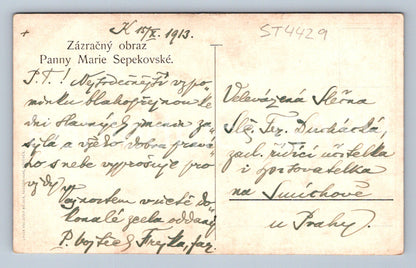 K 15/X. 1913.
ST4429
Zázračný obraz
Panny Marie Sepekovské.
P. T.! Nejsrdečnější vzpo-
mínku blahopřejnou ke
dni slavných jmenin za-
sílá a všeho dobra pravé-
ho s nebe vyprošuje pro
vždy
Vojnostem v úctě do-
konalé zcela oddaný
P. Vojtěch Frejka, far.
Velevážená Slečna
Slč. Ter. Duchácká,
zasl. řídící učitelka
i spisovatelka
na Smíchově
u Prahy.